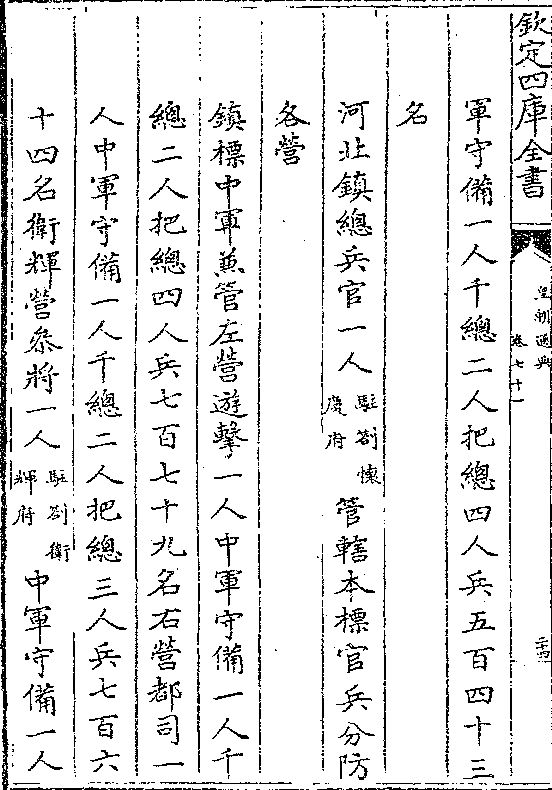 欽定四庫全書
皇朝通典
卷七十一
二十四
軍守備一人千總二人把總四人兵五百四十三
名
河北鎮總兵官一人駐劄懷慶府管轄本標官兵分防
各營
鎮標中軍兼管左營遊擊一人中軍守備一人千
總二人把總四人兵七百七十九名右營都司一
人中軍守備一人千總二人把總三人兵七百六
十四名衛輝營叅將一人駐劄衛輝府中軍守備一人